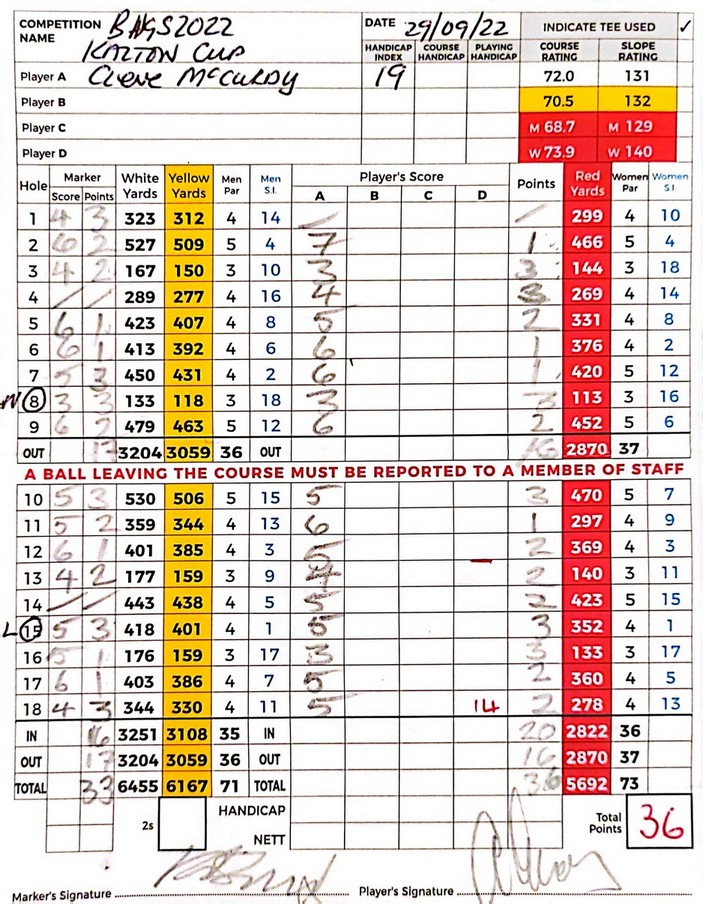 COMPETITION NAME BAGS2022 DATE 29/09/22 INDICATE TEE USED ✓
KALTON CUP HANDICAP INDEX COURSE HANDICAP PLAYING HANDICAP COURSE RATING SLOPE RATING
Player A Cleve McCurdy 19 72.0 131
Player B 70.5 132
Player C M 68.7 M 129
Player D W 73.9 W 140
Hole Marker White Yards Yellow Yards Men Par Men S.I. Player's Score Points Red Yards Women Par Women S.I.
Score Points A B C D
1 4 3 323 312 4 14 / / 299 4 10
2 6 2 527 509 5 4 7 1 466 5 4
3 4 2 167 150 3 10 3 3 144 3 18
4 / / 289 277 4 16 4 3 269 4 14
5 6 1 423 407 4 8 5 2 331 4 8
6 6 1 413 392 4 6 6 1 376 4 2
7 5 3 450 431 4 2 6 1 420 5 12
N 8 3 3 133 118 3 18 3 3 113 3 16
9 6 2 479 463 5 12 6 2 452 5 6
OUT 17 3204 3059 36 OUT 16 2870 37
A BALL LEAVING THE COURSE MUST BE REPORTED TO A MEMBER OF STAFF
10 5 3 530 506 5 15 5 3 470 5 7
11 5 2 359 344 4 13 6 1 297 4 9
12 6 1 401 385 4 3 5 2 369 4 3
13 4 2 177 159 3 9 4 2 140 3 11
14 / / 443 438 4 5 5 2 423 5 15
L 15 5 3 418 401 4 1 5 3 352 4 1
16 5 1 176 159 3 17 3 3 133 3 17
17 6 1 403 386 4 7 5 2 360 4 5
18 4 3 344 330 4 11 5 14 2 278 4 13
IN 16 3251 3108 35 IN 20 2822 36
OUT 17 3204 3059 36 OUT 16 2870 37
TOTAL 33 6455 6167 71 TOTAL 36 5692 73
2s HANDICAP Total Points 36
NETT
Marker's Signature Player's Signature